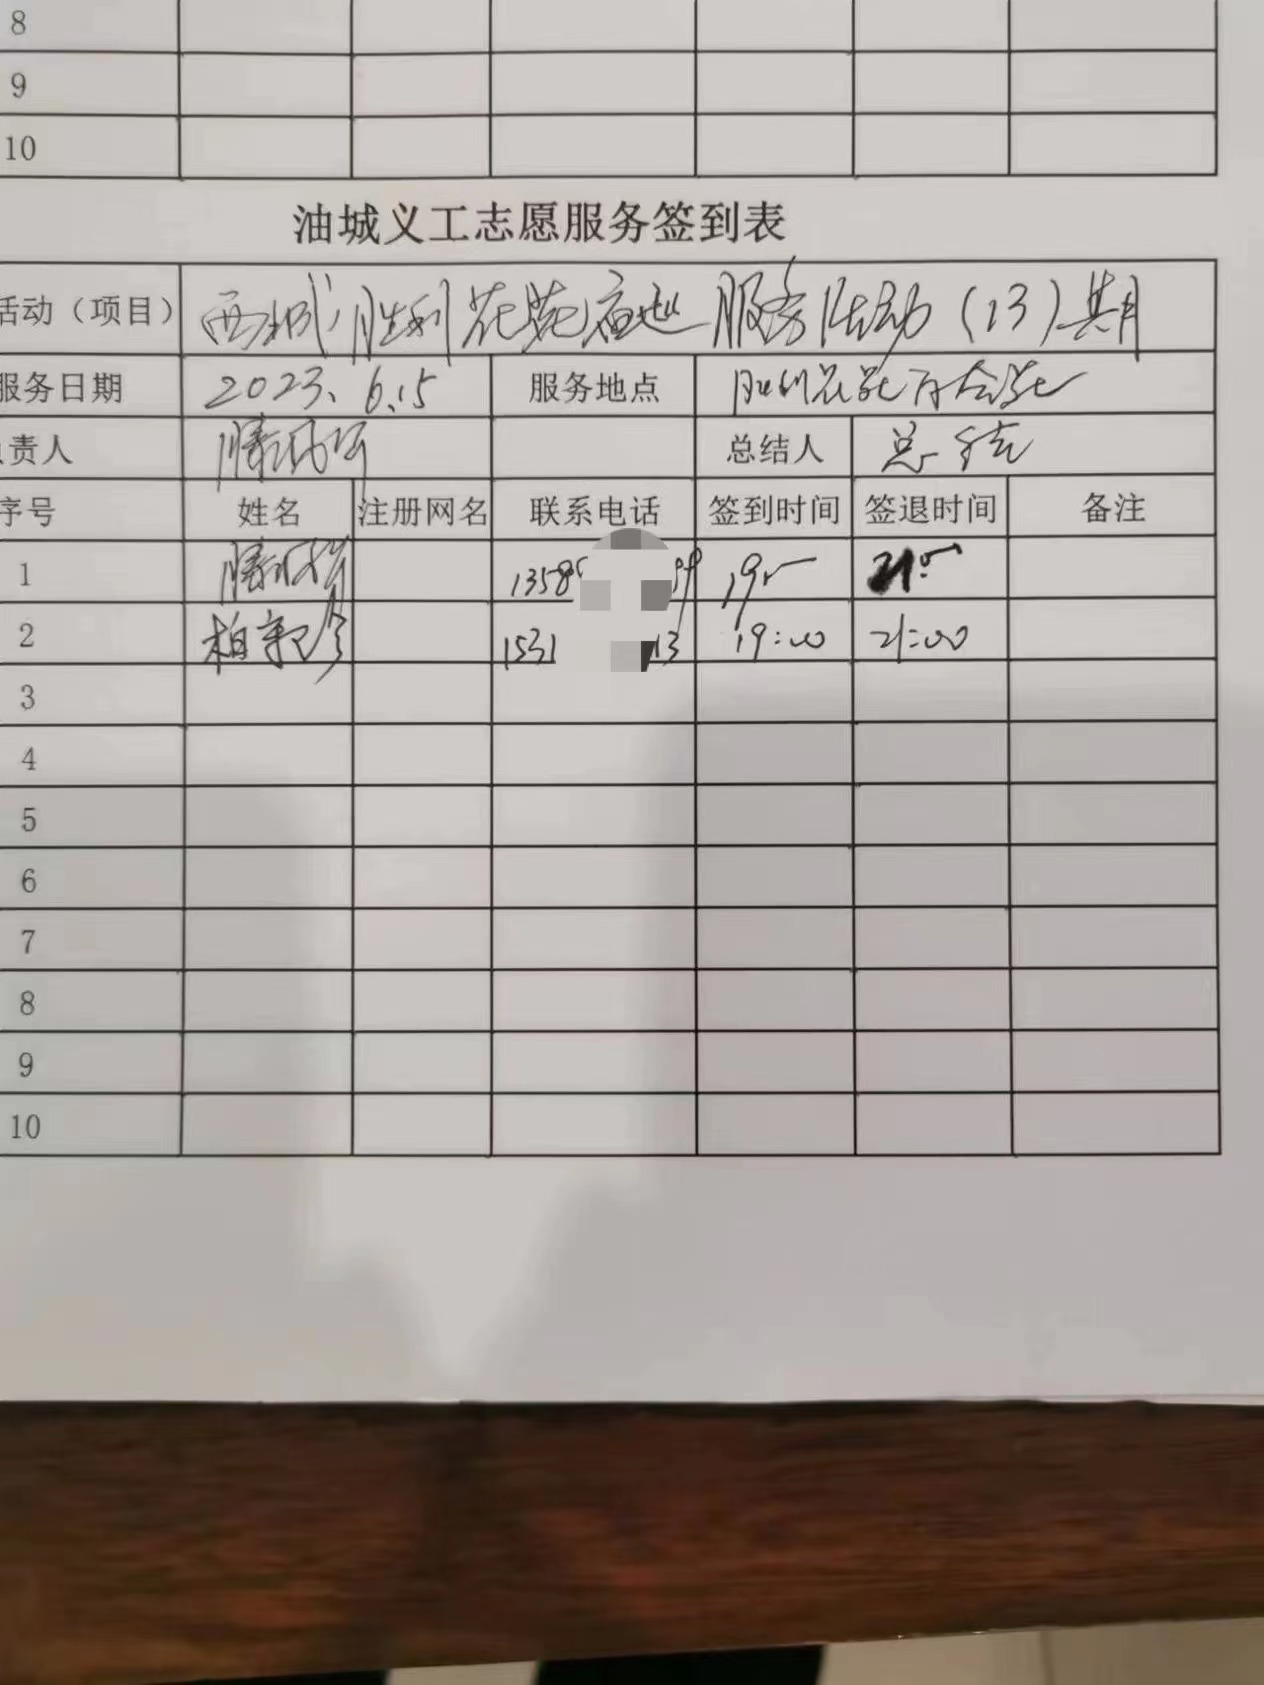 8
9
10
油城义工志愿服务签到表
活动（项目） 西城胜利花苑 服务活动（13）期
服务日期 2023.6.15 服务地点 胜利花苑百合苑
责人 滕 总结人 总结
序号 姓名 注册网名 联系电话 签到时间 签退时间 备注
1 滕 1358 19 21
2 柏 1531 13 19:00 21:00
3
4
5
6
7
8
9
10